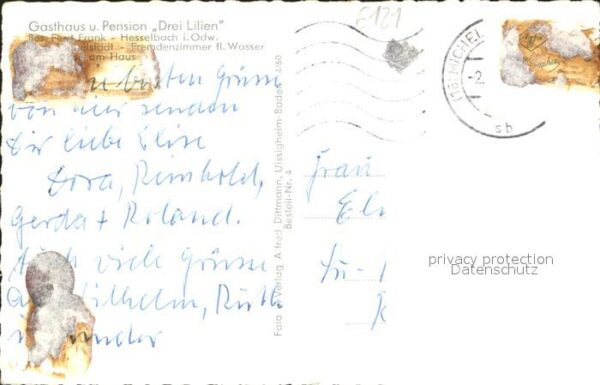 Gasthaus u. Pension „Drei Lilien"
Bes. Frank - Hesselbach i. Odw.
Fremdenzimmer fl. Wasser
am Haus
Grüsse
von hier senden
Dir liebe Elise
Dora, Reinhold,
Gerda + Roland.
Auch viele Grüsse
Wilhelm, Ruth
Foto Verlag Alfred Dittmann, Uissigheim Baden 3/60
Bestell-Nr. 4
E121
(16) MICHEL
-2.
sb
Agfa
Frau
El
privacy protection
Datenschutz